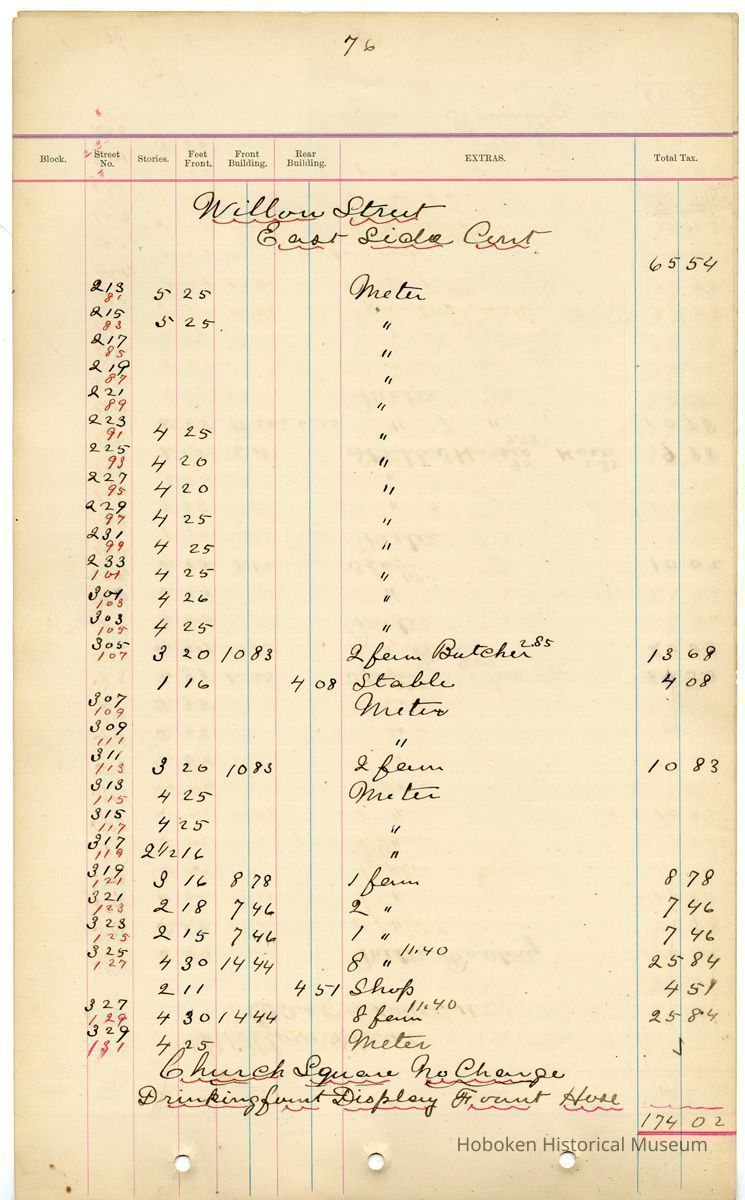 76
Block. Street No. Stories. Feet Front. Front Building. Rear Building. EXTRAS. Total Tax.
Willow Street
East Side Cont
65 54
213 81 5 25 Meter
215 83 5 25 "
217 85 "
219 87 "
221 89 "
223 91 4 25 "
225 93 4 20 "
227 95 4 20 "
229 97 4 25 "
231 99 4 25 "
233 101 4 25 "
301 103 4 26 "
303 105 4 25 "
305 107 3 20 10 83 2 fam Butcher 2.85 13 68
1 16 4 08 Stable 4 08
307 109 Meter
309 111 "
311 113 3 20 10 83 2 fam 10 83
313 115 4 25 Meter
315 117 4 25 "
317 119 2 1/2 16 "
319 121 3 16 8 78 1 fam 8 78
321 123 2 18 7 46 2 " 7 46
323 125 2 15 7 46 1 " 7 46
325 127 4 30 14 44 8 " 11.40 25 84
2 11 4 51 Shop 4 51
327 129 4 30 14 44 8 fam 11.40 25 84
329 131 4 25 Meter
Church Square No Change
Drinking fount Display Fount Hose
174 02
Hoboken Historical Museum